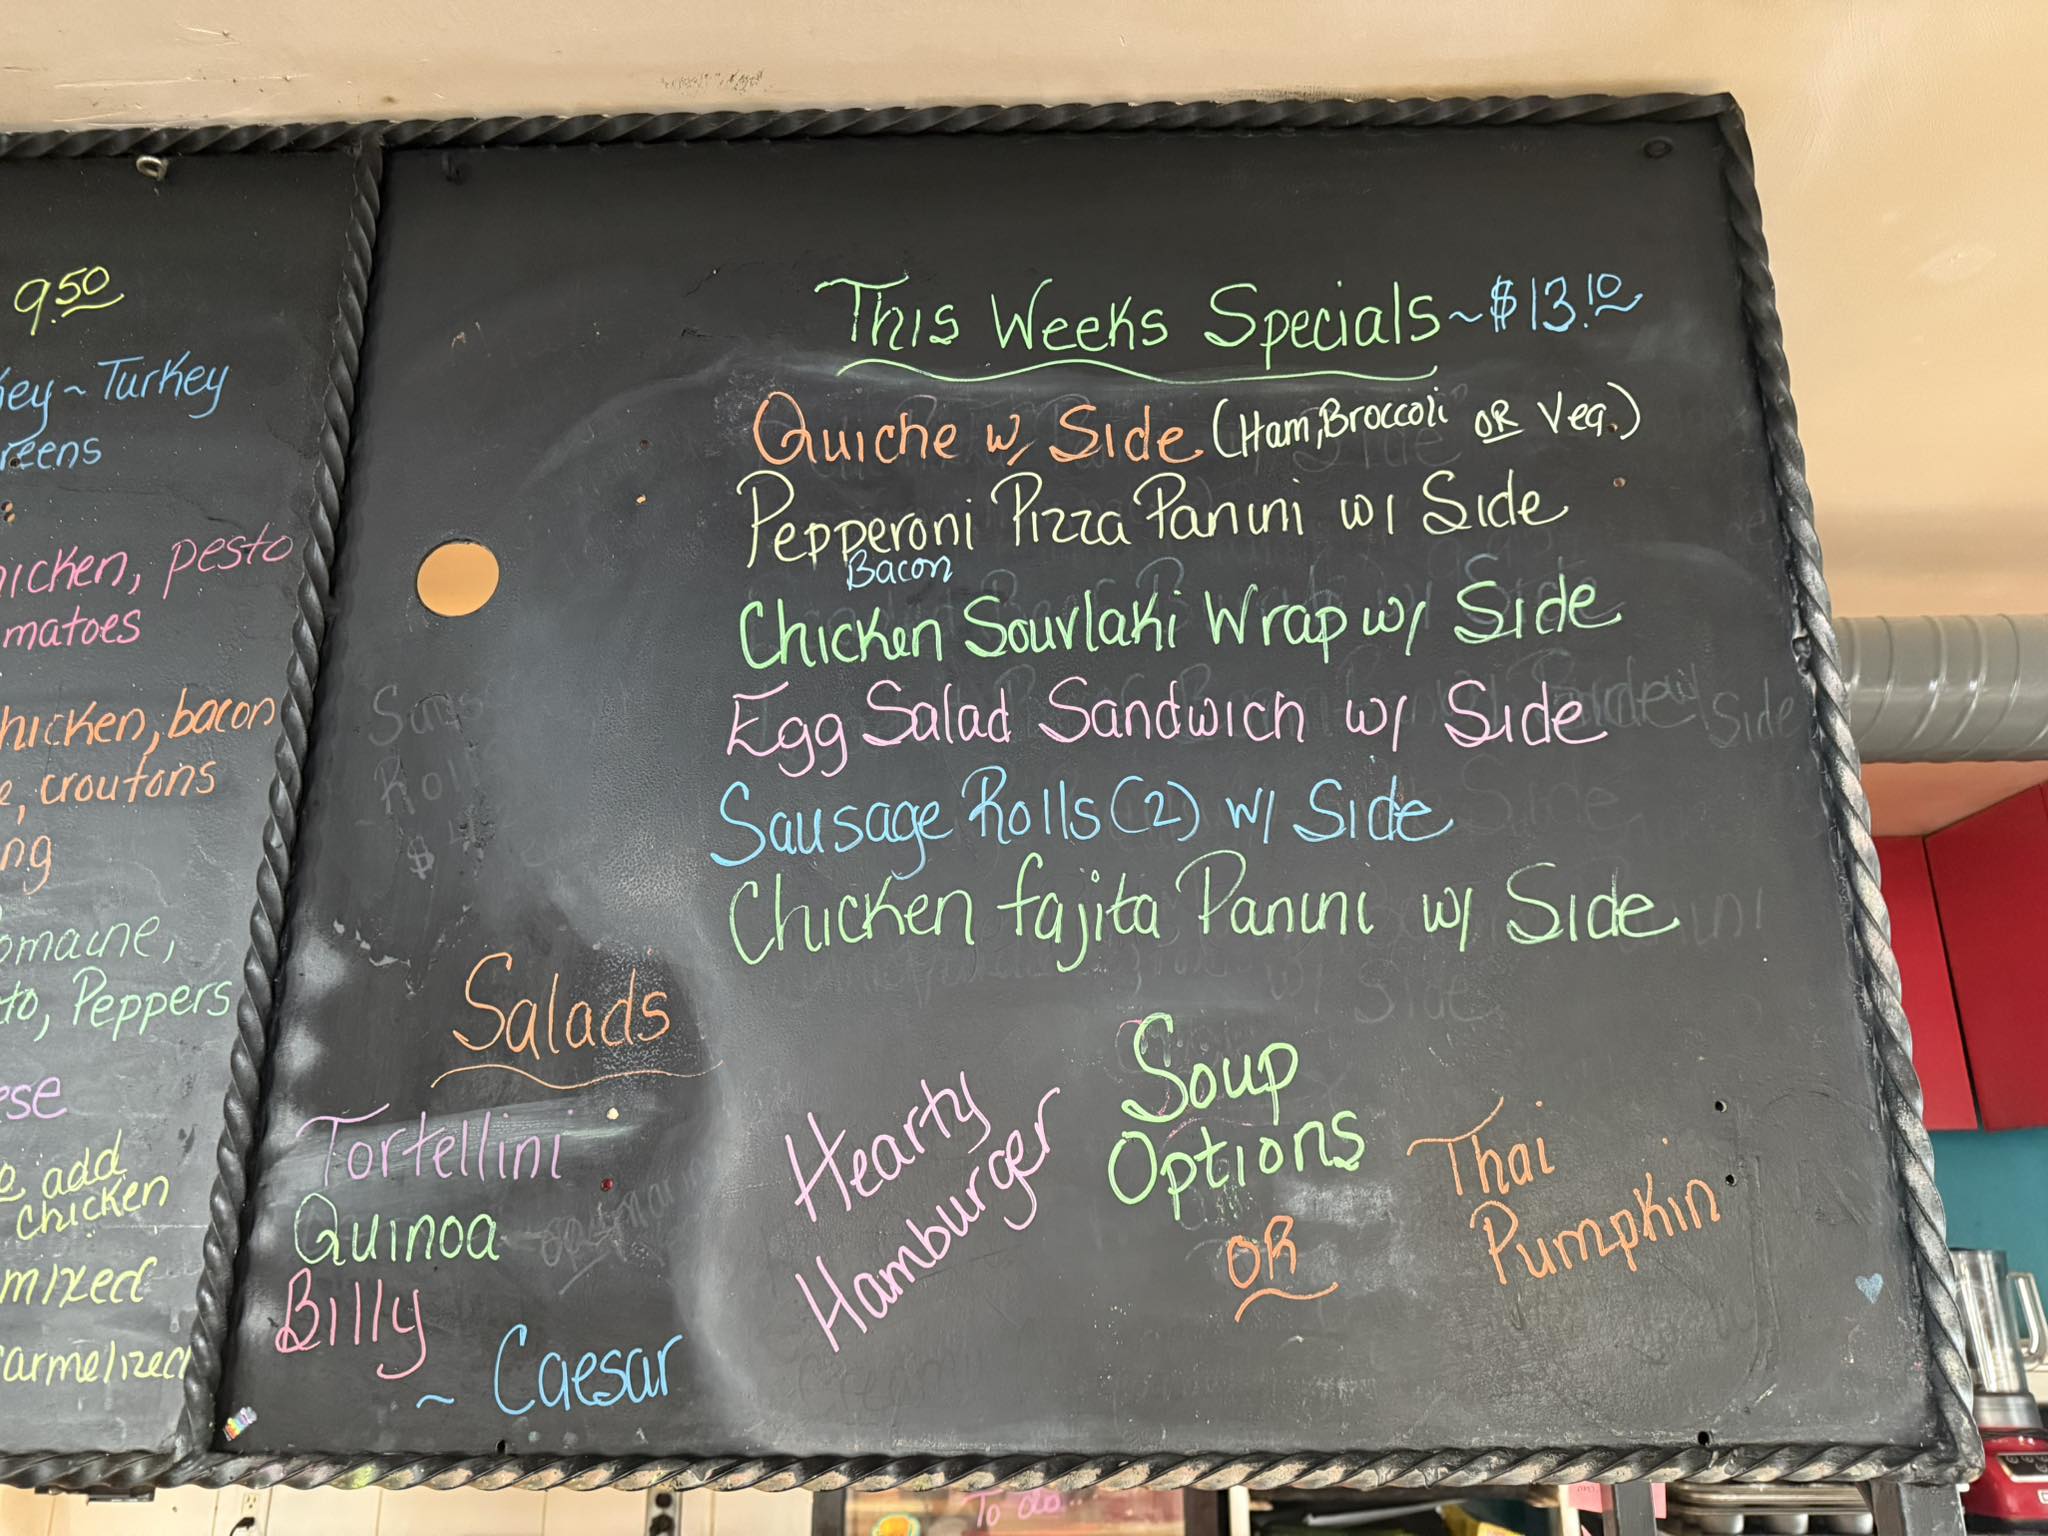 9.50
Key ~ Turkey
reens
hicken, pesto
matoes
hicken, bacon
e, croutons
ng
omaine,
to, Peppers
ese
add
chicken
mixed
carmelized
This Weeks Specials ~ $13.10
Quiche w/ Side (Ham, Broccoli OR Veg.)
Pepperoni Pizza Panini w/ Side
Bacon
Chicken Souvlaki Wrap w/ Side
Egg Salad Sandwich w/ Side
Sausage Rolls (2) w/ Side
Chicken fajita Panini w/ Side
Salads
Tortellini
Quinoa
Billy
~ Caesar
Soup
Options
Hearty
Hamburger
OR
Thai
Pumpkin
To do...